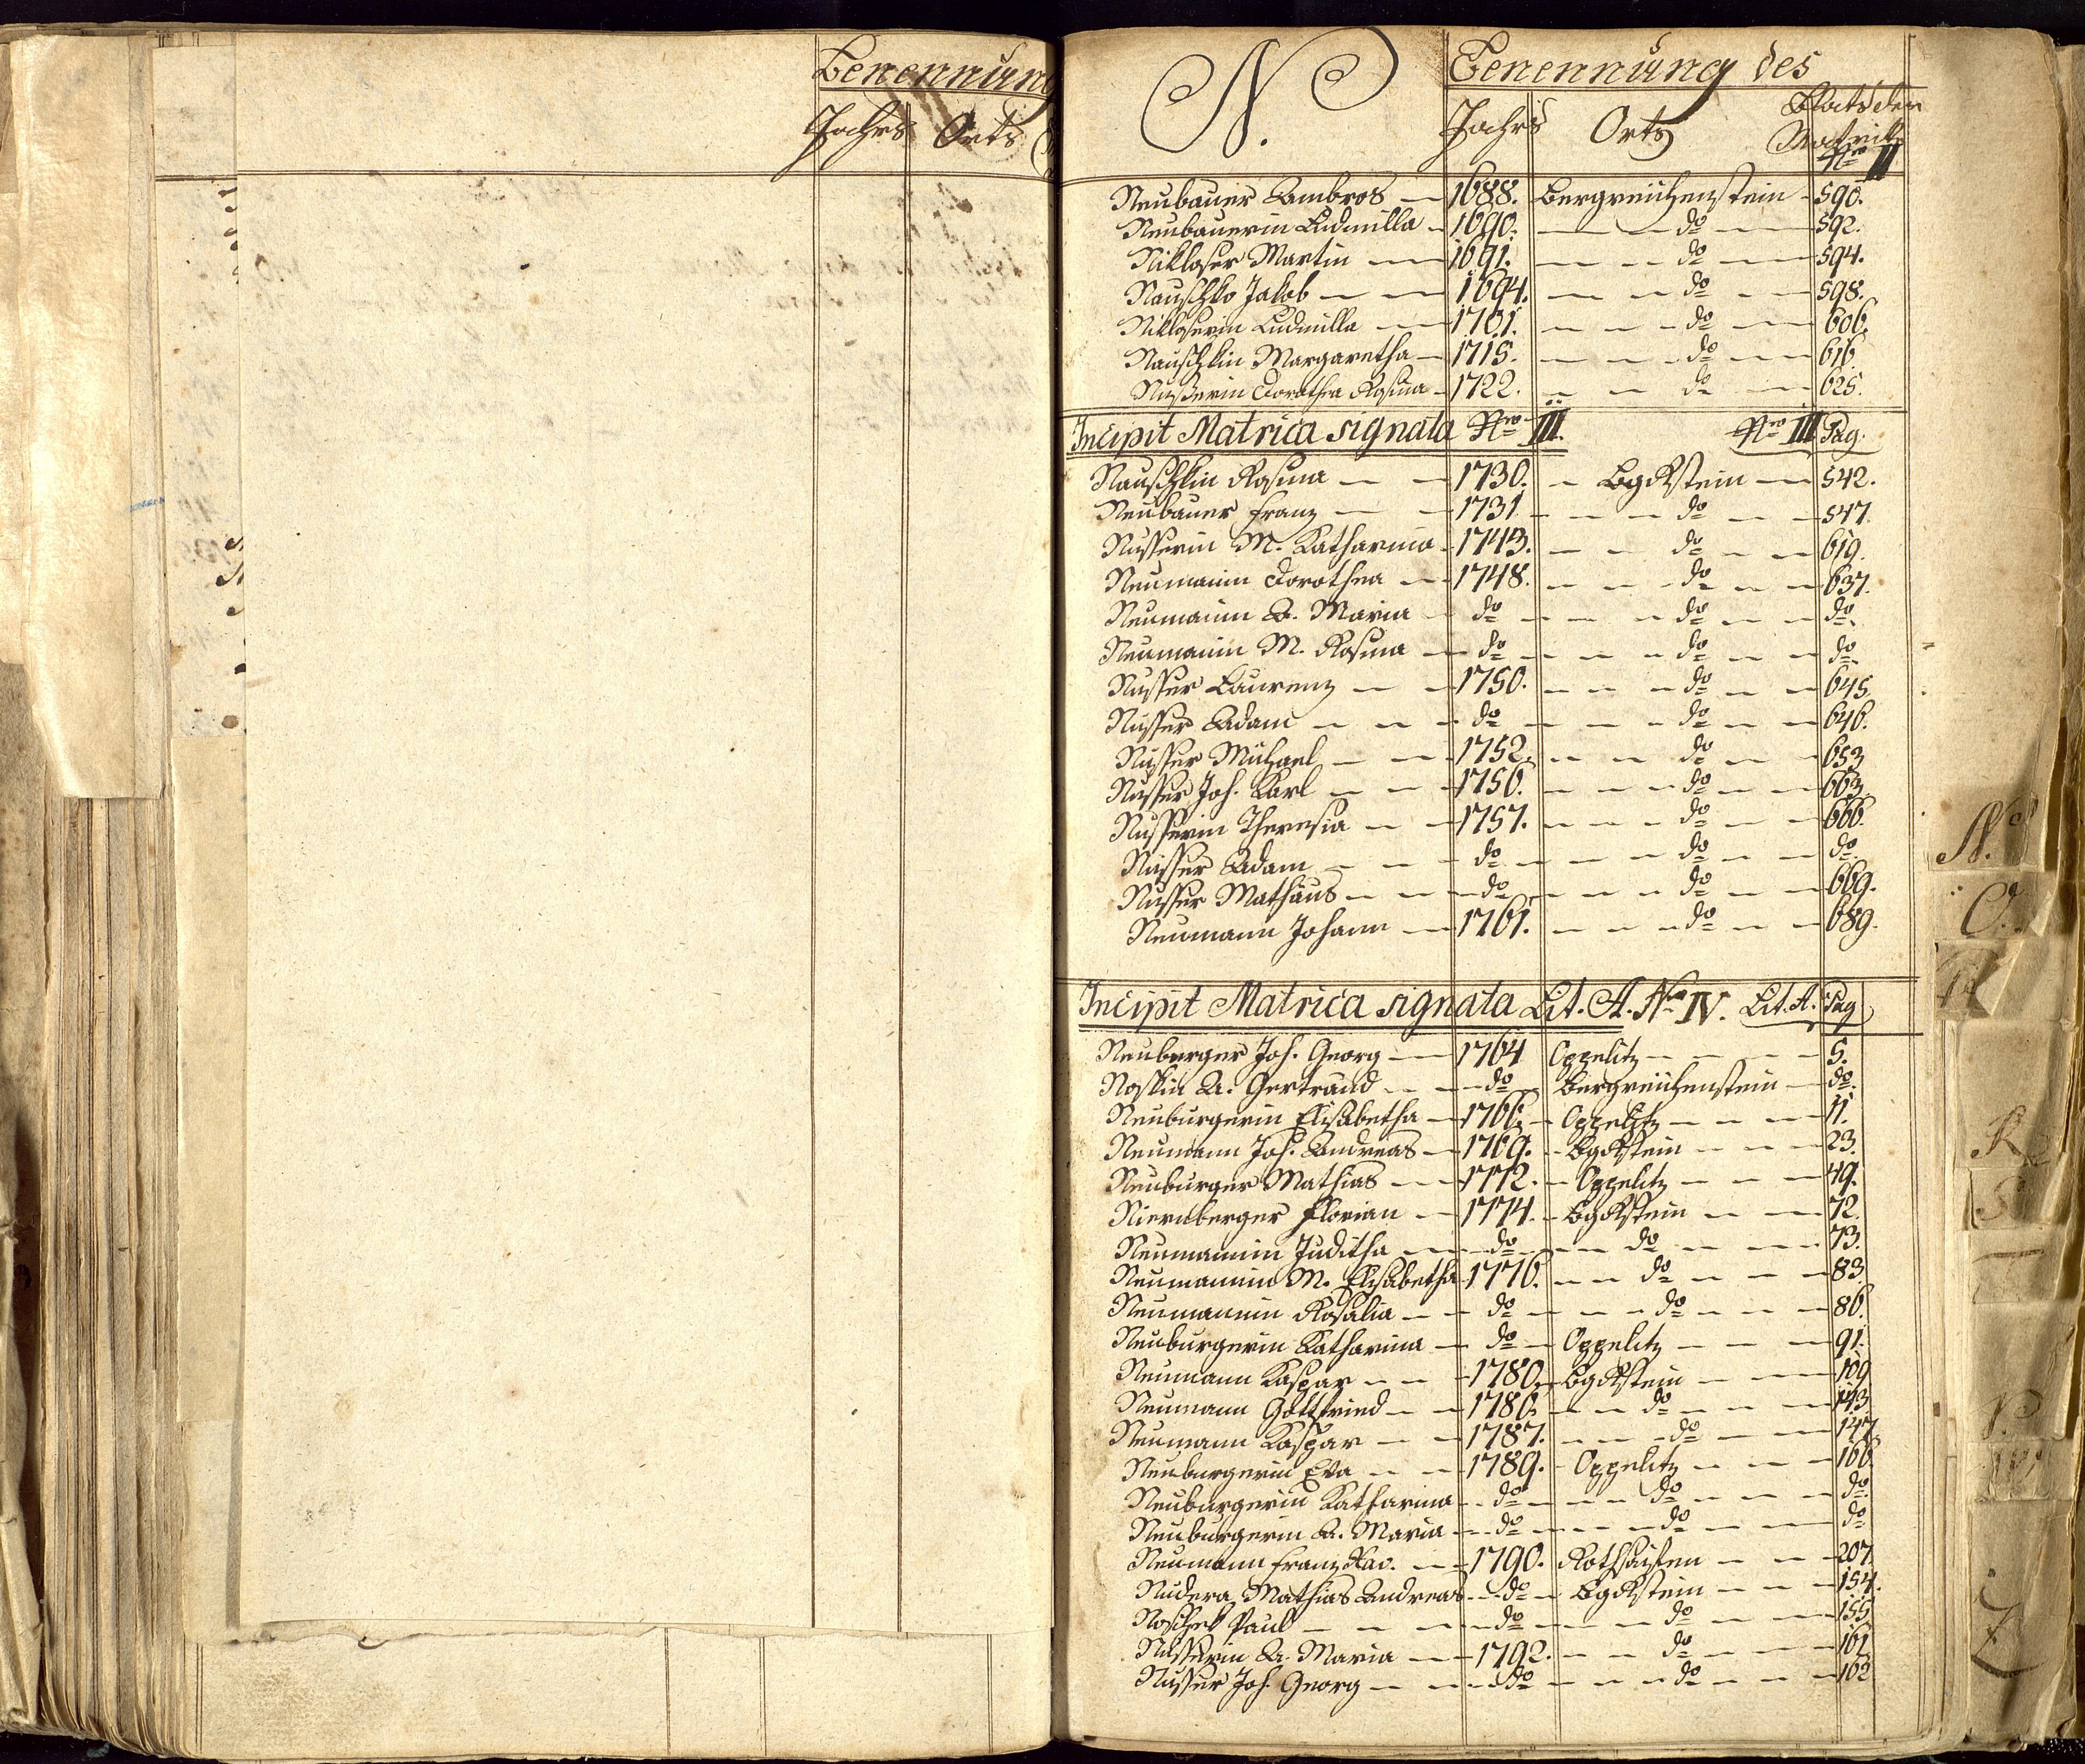 Benennung
Jahrs Orts
N. Benennung des
Jahrs Orts Blats der
Matrik
Nro II
Neubauer Ambros — 1688. Bergreichenstein — 590.
Neubauerin Ludmilla — 1690. — do — 592.
Nikloser Martin — 1691. — do — 594.
Nauschko Jakob — 1694. — do — 598.
Nikloserin Ludmilla — 1701. — do — 606.
Nauschkin Margaretha — 1715. — do — 616.
Nußerin Dorothea Rosina — 1722. — do — 625.
Incipit Matrica signata Nro III. Nro III Pag.
Nauschkin Rosina — 1730. — BgRstein — 542.
Neubauer Franz — 1731 — do — 547.
Nusserin M. Katharina — 1743. — do — 619.
Neumanin Dorothea — 1748. — do — 637.
Neumanin A. Maria — do — do — do.
Neumanin M. Rosina — do — do — do.
Nusser Laurenz — 1750. — do — 645.
Nusser Adam — do — do — 646.
Nusser Michael — 1752. — do — 653.
Nusser Joh. Karl — 1756. — do — 663.
Nusserin Theresia — 1757. — do — 666.
Nusser Adam — do — do — do.
Nusser Mathäus — do — do — 669.
Neumann Johann — 1761. — do — 689.
Incipit Matrica signata Lit. A. Nro IV. Lit. A. Pag
Neuburger Joh. Georg — 1764 Oppelitz — 5.
Noskin A. Gertraud — do — Bergreichenstein — do.
Neuburgerin Elisabetha — 1766. — Oppelitz — 11.
Neumann Joh. Andreas — 1769. — BgRstein — 23.
Neuburger Mathias — 1772. — Oppelitz — 49.
Niernberger Florian — 1774. — BgRstein — 72.
Neumannin Juditha — do — do — 73.
Neumannin M. Elisabetha 1776. — do — 83.
Neumannin Rosalia — do — do — 86.
Neuburgerin Katharina — do — Oppelitz — 91.
Neumann Kaspar — 1780. — BgRstein — 109
Neumann Gottfried — 1786. — do — 143.
Neumann Kaspar — 1787. — do — 147.
Neuburgerin Eva — 1789. — Oppelitz — 166
Neuburgerin Katharina — do — do — do.
Neuburgerin A. Maria — do — do — do
Neumann Franz Xav. — 1790. Rothsaifen — 207.
Nudera Mathias Andreas — do — BgRstein — 154.
Noschek Paul — do — do — 155
Nusserin A. Maria — 1792. — do — 161
Nusser Joh. Georg — do — do — 162
N.
O.
R
S
Z